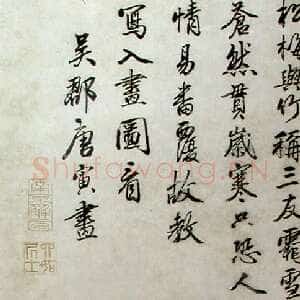 松梅與竹稱三友霜雪
蒼然貫歲寒只恐人
情易翻覆故教
寫入畫圖看
吳郡唐寅畫
Shufawang.CN